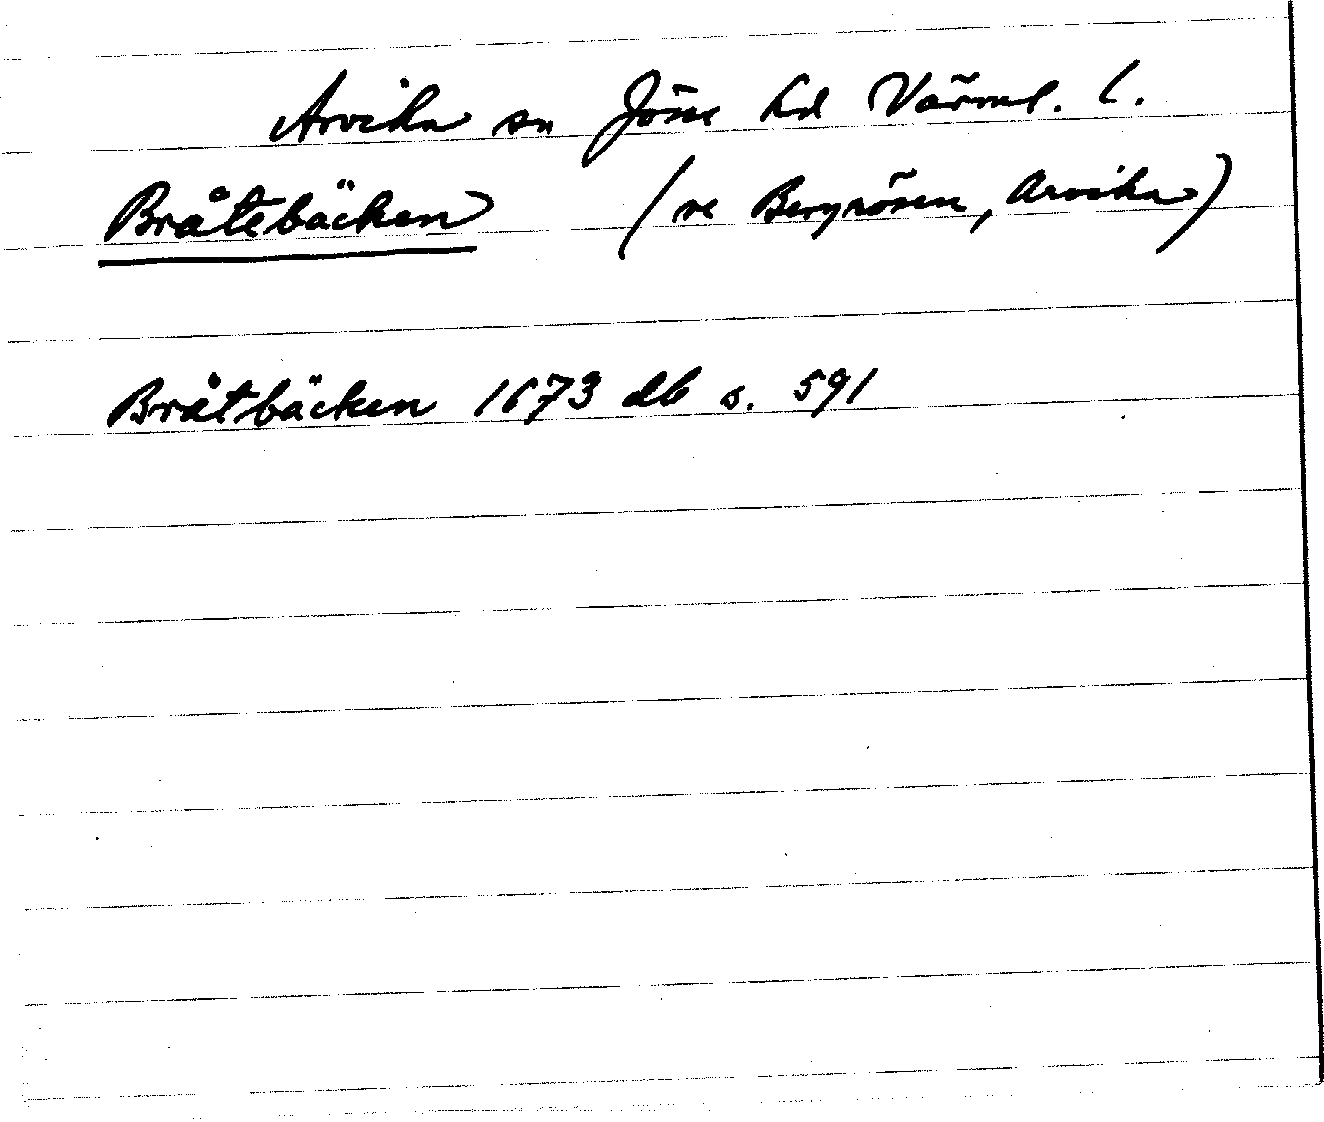 Arvika sn Jösse hd Värml. l.
Bråtebäcken (se Bergåsen, Arvika)
Bråtbäcken 1673 db s. 591